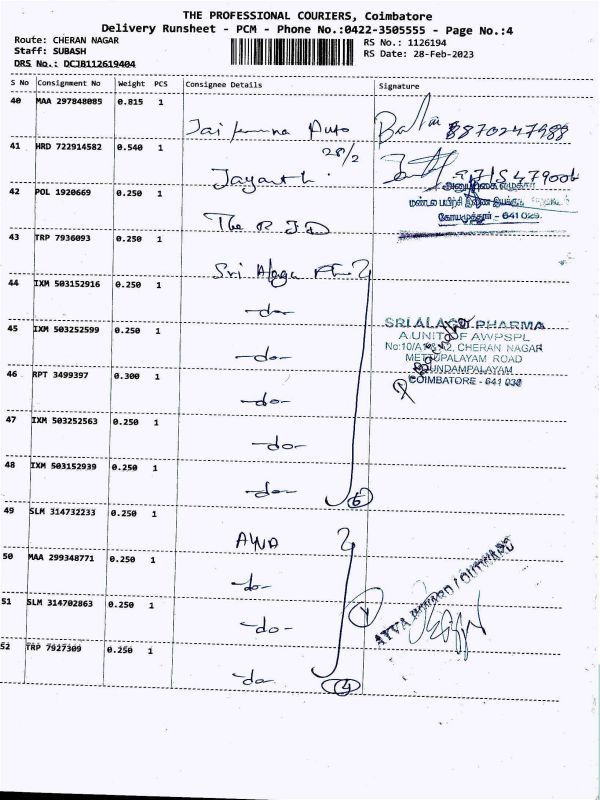 THE PROFESSIONAL COURIERS, Coimbatore
Delivery Runsheet - PCM - Phone No.:0422-3505555 - Page No.:4
Route: CHERAN NAGAR
RS No.: 1126194
Staff: SUBASH
RS Date: 28-Feb-2023
DRS No.: DCJB112619404
S No Consignment No Weight PCS Consignee Details Signature
40 MAA 297848085 0.815 1
Auto 8870247988
28/2
41 HRD 722914582 0.540 1
Jayanthi
அனுப்புகை எழுத்தர்
42 POL 1920669 0.250 1
மண்டல பயிற்சி
கோயமுத்தூர் - 641 029.
The RJD
43 TRP 7936093 0.250 1
Sri Alagu
44 IXM 503152916 0.250 1
-do-
SRI ALAGU PHARMA
45 IXM 503252599 0.250 1
A UNIT OF AWPSPL
-do-
CHERAN NAGAR
METTUPALAYAM ROAD
46 RPT 3499397 0.300 1
GOUNDAMPALAYAM
COIMBATORE - 641 030
-do-
47 IXM 503252563 0.250 1
-do-
48 IXM 503152939 0.250 1
-do- 6
49 SLM 314732233 0.250 1
AYVA
50 MAA 299348771 0.250 1
-do-
AYVA INWARD / OUTWARD
51 SLM 314702863 0.250 1
-do-
52 TRP 7927309 0.250 1
-do- 4